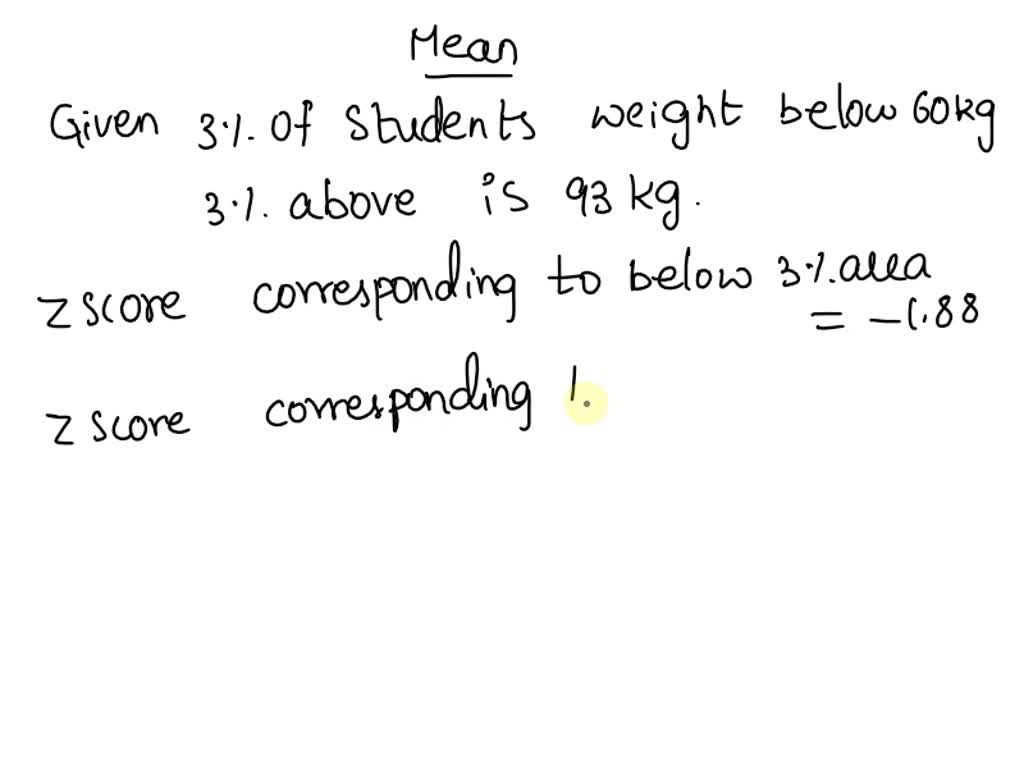 Mean
Given 3%. Of Students weight below 60kg
3%. above is 93 kg.
Z score corresponding to below 3%. area
= -1.88
Z score corresponding